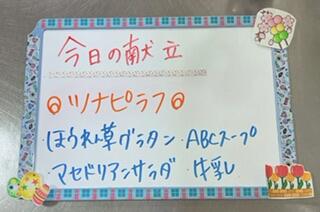 今日の献立
ツナピラフ
・ほうれん草グラタン・ABCスープ
・マセドリアンサラダ・牛乳